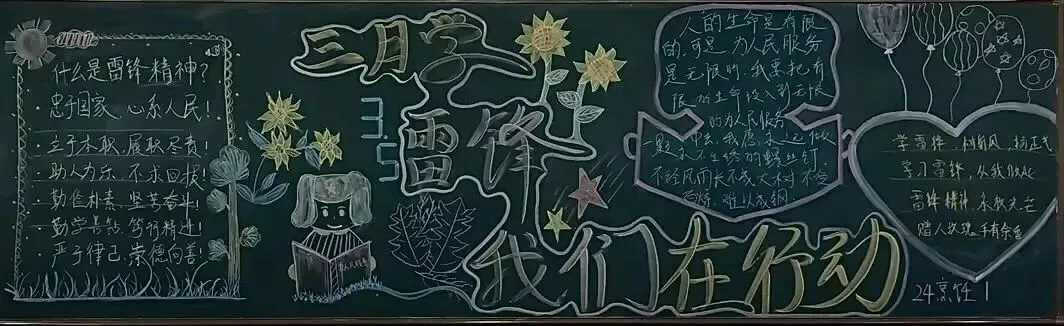 什么是雷锋精神？
忠于国家 心系人民！
立于本职 履职尽责！
助人为乐 不求回报！
勤俭朴素 坚苦奋斗！
勤学善钻 笃行精进！
严于律己 崇德向善！
三月学
3.5
雷锋
我们在行动
人的生命是有限
的，可是，为人民服务
是无限的，我要把有
限的生命投入到无限
的为人民服务
中去，我愿永远做
不生锈的螺丝钉
不经风雨长不成大树 不
百炼，难以成钢
学雷锋 树新风 扬正气
学习雷锋，从我做起
雷锋精神 永放光芒
赠人玫瑰 手有余香
24烹饪1